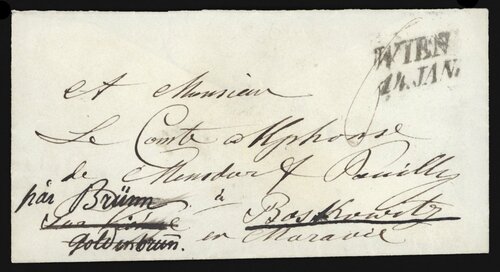 WIEN
14. JAN.
A Monsieur
Le Comte Alphonse
de Mensdorf Pouilly
pár Brünn à Boskowitz
Goldenbrun. en Moravie